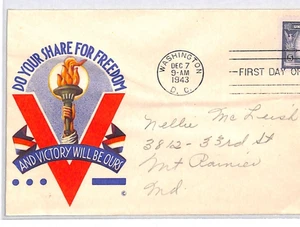 DO YOUR SHARE FOR FREEDOM
AND VICTORY WILL BE OURS
WASHINGTON
DEC 7
9-AM
1943
D. C.
FIRST DAY O
Nellie Mc Leish
3842-33rd St
Mt Rainier
Md.